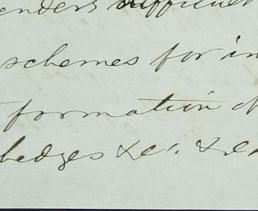 enders difficult
schemes for in
formation of
hedges &c. &c.